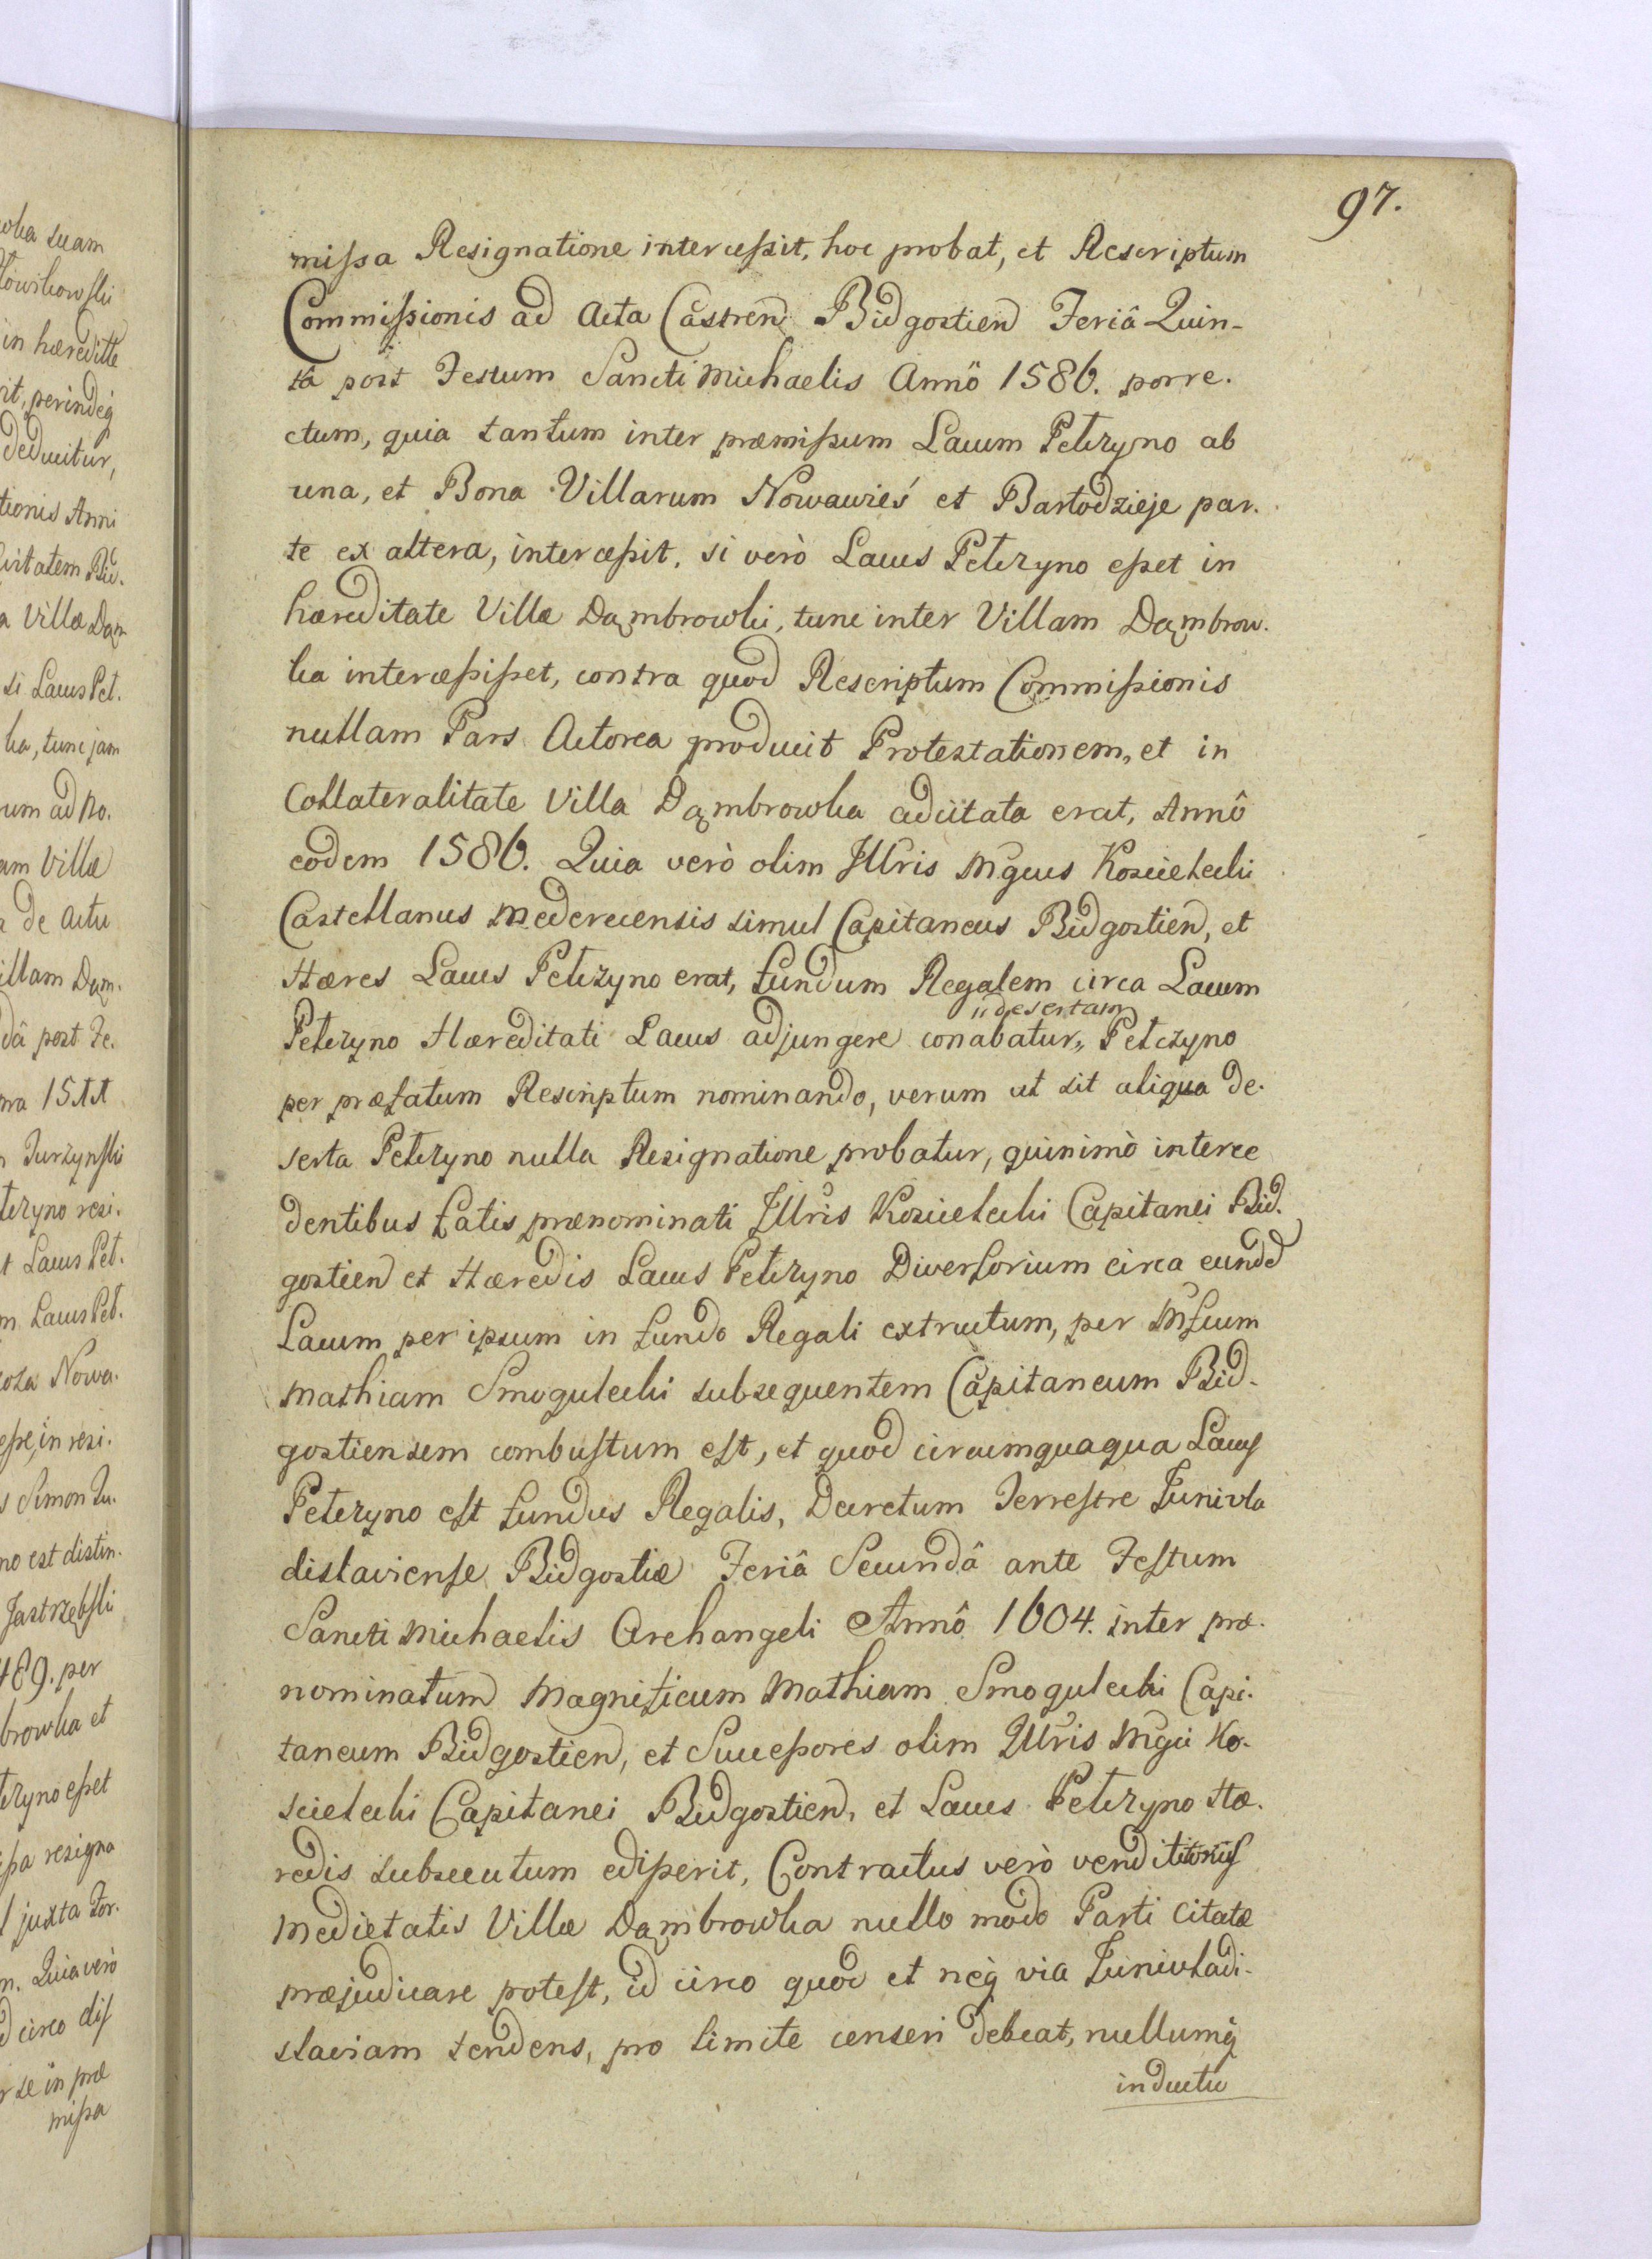 97.
missa Resignatione intercessit, hoc probat, et Rescriptum
Commissionis ad Acta Castren Bidgostien Feriâ Quin-
ta post Festum Sancti Michaelis Annô 1586. porre.
ctum, quia tantum inter præmissum Lacum Petczyno ab
una, et Bona Villarum Nowawieś et Bartodzieje par.
te ex altera, intercessit, si verò Lacus Petczyno esset in
hæreditate Villæ Dąmbrowki, tunc inter Villam Dąmbrow.
ka intercessisset, contra quod Rescriptum Commissionis
nullam Pars Actorea producit Protestationem, et in
Collateralitate Villa Dąmbrowka adcitata erat, Annô
eodem 1586. Quia verò olim Jllris Mgcus Koscielecki
Castellanus Medereciensis simul Capitaneus Bidgostien, et
Hæres Lacus Petczyno erat, fundum Regalem circa Lacum
"desertam
Petczyno Hæreditati Lacus adjungere conabatur,, Petczyno
per præfatum Rescriptum nominando, verum ut sit aliqua de.
serta Petczyno nulla Resignatione probatur, quinimò interce
dentibus fatis prænominati Jllris Koscielecki Capitanei Bid.
gostien et Hæredis Lacus Petczyno Diversorium circa eundd
Lacum per ipsum in fundo Regali extructum, per Mfcum
Mathiam Smogulecki subsequentem Capitaneum Bid-
gostiensem combustum est, et quod circumquaqua Lacus
Petczyno est fundus Regalis, Decretum Terrestre Junivla
dislaviense Bidgostiæ Feriâ Secundâ ante Festum
Sancti Michaelis Archangeli Annô 1604. inter præ.
nominatum Magnificum Mathiam Smogulecki Capi.
taneum Bidgostien, et Successores olim Jllris Mgci Ko.
scielecki Capitanei Bidgostien, et Lacus Petczyno Hæ.
redis subsecutum edisserit, Contractus verò venditorius
Medietatis Villæ Dąmbrowka nullo modo Parti Citatæ
præjudicare potest, id circo quod et neq́ via Junivladi-
slaviam tendens, pro limite censeri debeat, nullumq́
inductu
wka suam
in hæreditte
rit, perindeq́
deducitur,
tionis Anni
a Villæ Dąm
si Lacus Pet.
ka, tunc jam
um ad No.
am Villæ
a de Actu
illam Dąm.
dâ post Fe.
tczyno resi.
t Lacus Pet.
m Lacus Pet.
Nowa.
esse, in resi.
s Simon Ju.
no est distin.
Jastrzębski
489. per
browka et
tczyno esset
issa resigna
juxta for.
n. Quia verò
d circo dis
r se in præ
missa